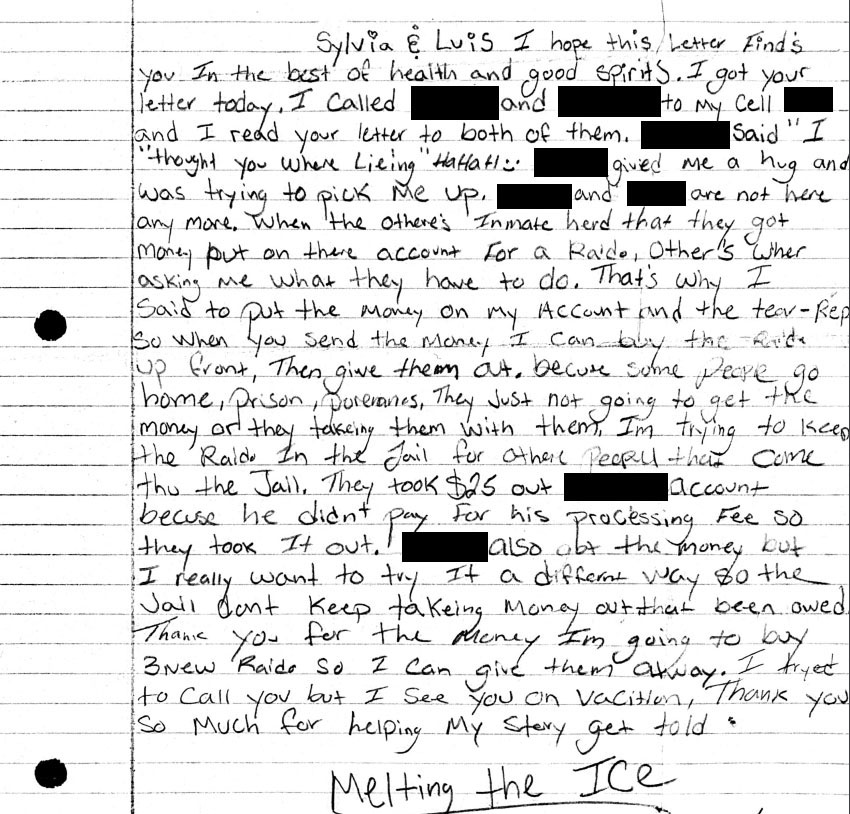 Sylvia & Luis I hope this Letter Find's
you In the best of health and good spirits. I got your
letter today. I Called and to My Cell
and I read your letter to both of them. Said "I
"thought you where Lieing" HaHaH!:
gived me a hug and
was trying to pick Me up. and are not here
any more. When the othere's Inmate herd that they got
money put on there account For a Raido, Other's Wher
asking me what they have to do. That's why I
Said to put the money on my Account and the tear-Rep
So when you send the Money I Can buy the Raido
up front, Then give them out. becuse some go
home, prison, They Just not going to get the
money or they takeing them with them. Im trying to keep
the Raido In the Jail for othere that Come
thu the Jail. They took $25 out account
becuse he didn't pay For his processing Fee so
they took It out. also the money but
I really want to try It a different way so the
Jail dont Keep takeing Money out that been owed
Thank you for the Money Im going to buy
3 New Raido So I Can give them away. I tryed
to Call you but I See you on Vacition, Thank you
So Much for helping My Story get told
Melting the ICE